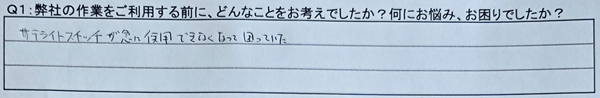 Q1:弊社の作業をご利用する前に、どんなことをお考えでしたか？何にお悩み、お困りでしたか？
サテライトスイッチが急に使用できなくなって困っていた